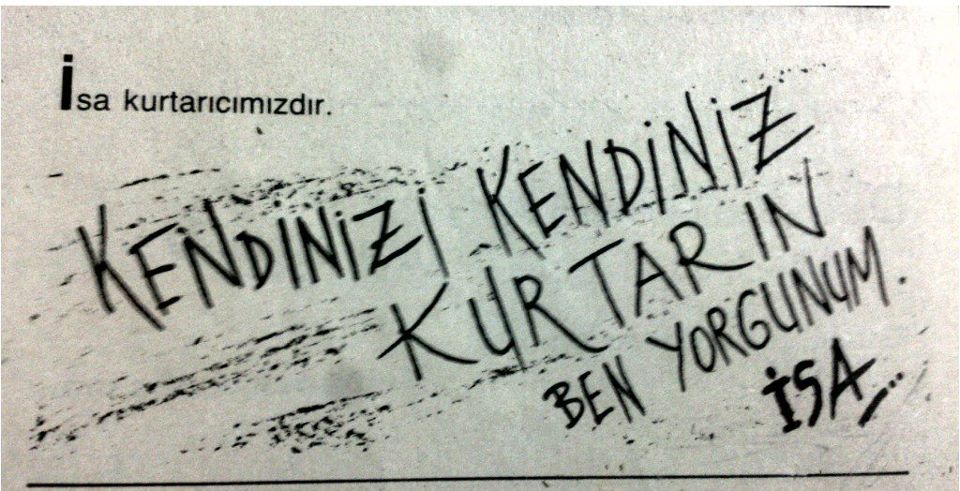 İsa kurtarıcımızdır.
KENDİNİZİ KENDİNİZ
KURTARIN
BEN YORGUNUM.
İSA...